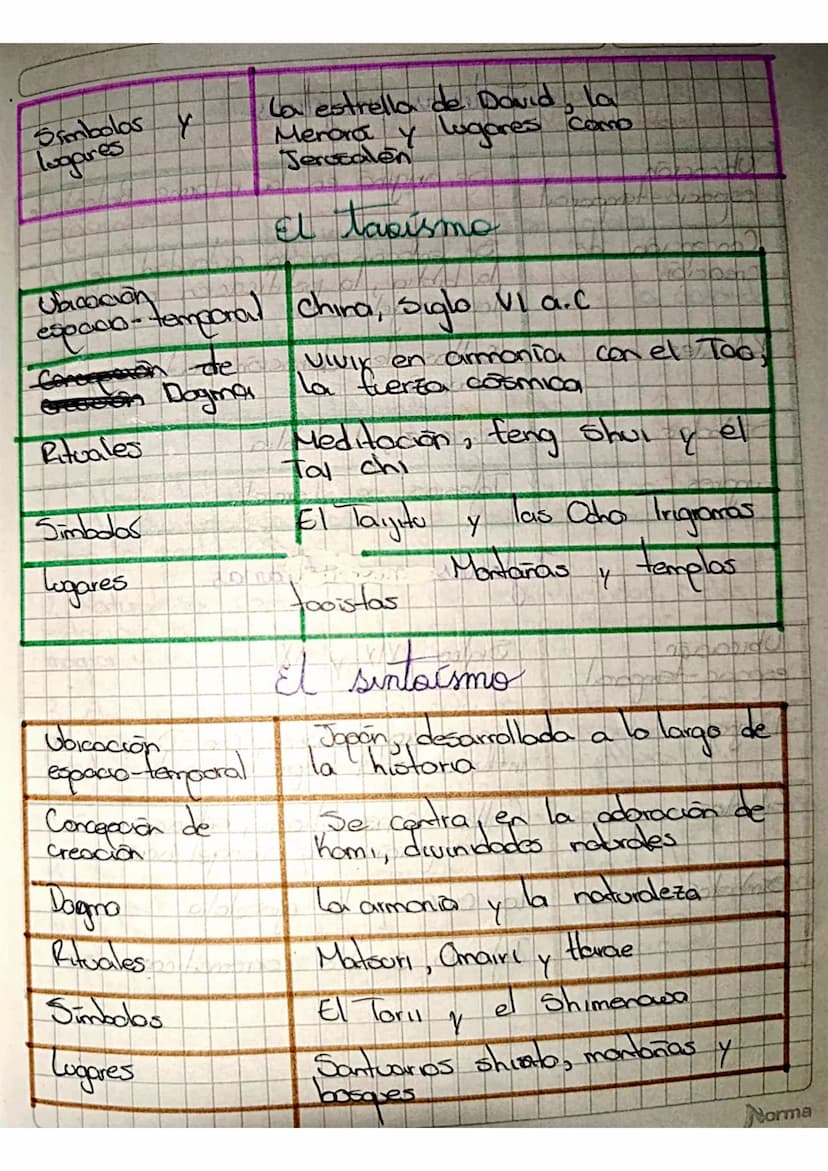 Símbolos y
lugares
La estrella de David, la
Menora y lugares como
Jerusalén
El taoísmo
Ubicación
espacio-temporal
China, Siglo VI a.C
Concepción de
creación Dogma
Vivir en armonía con el Tao,
la fuerza cósmica
Rituales
Meditación, feng shui y el
Tai chi
Símbolos
El Tayitu y las Ocho Trigramas
Lugares
Montañas y templos
taoistas
El sintaísmo
Ubicación
espacio-temporal
Japón, desarrollada a lo largo de
la historia
Concepción de
creación
Se centra, en la adoración de
Kami, divinidades naturales
Dogma
La armonía y la naturaleza
Rituales
Matsuri, Omairi y Harae
Símbolos
El Torii y el Shimenawa
Lugares
Santuarios shinto, montañas y
bosques
Norma